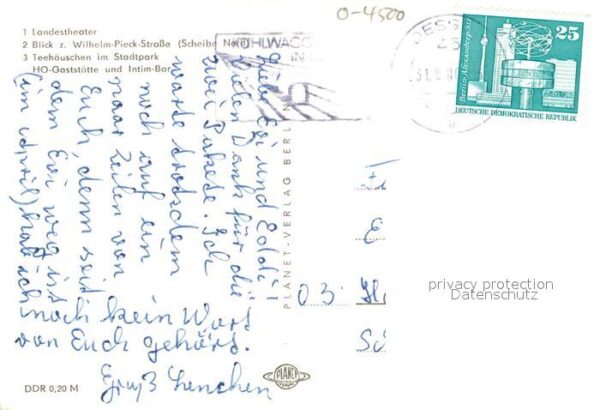 O-4500
1 Landestheater
2 Blick z. Wilhelm-Pieck-Straße (Scheibe Nord)
3 Teehäuschen im Stadtpark
HO-Gaststätte und Intim-Bar
DESS
25
Berlin-Alexanderplatz
DEUTSCHE DEMOKRATISCHE REPUBLIK
Liebe Evi und Eddi!
Vielen Dank für die
zwei Pakete. Ich
warte trotzdem
noch auf ein
paar Zeilen von
Euch, denn seit
dem Evi weg ist
(im April) hab ich
noch kein Wort
von Euch gehört.
Gruß Lenchen
PLANET-VERLAG BERLIN
E
03
privacy protection
Datenschutz
PLANET
VERLAG
DDR 0,20 M